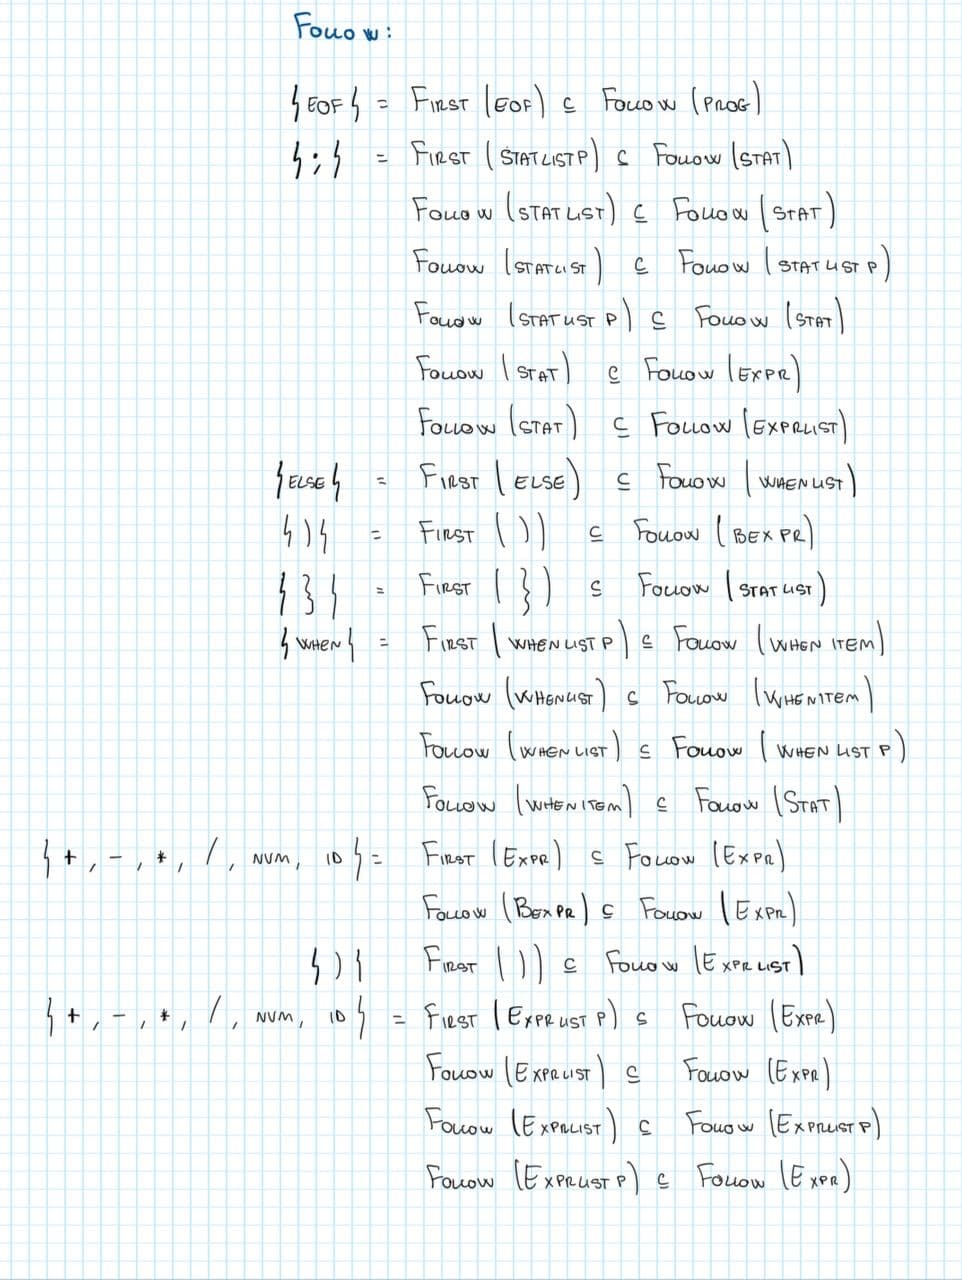 Follow:
{EOF} = FIRST (EOF) ⊆ Follow (PROG)
{;} = FIRST (STATLISTP) ⊆ Follow (STAT)
Follow (STATLIST) ⊆ Follow (STAT)
Follow (STATLIST) ⊆ Follow (STATLISTP)
Follow (STATLISTP) ⊆ Follow (STAT)
Follow (STAT) ⊆ Follow (EXPR)
Follow (STAT) ⊆ Follow (EXPRLIST)
{ELSE} = FIRST (ELSE) ⊆ Follow (WHENLIST)
{)} = FIRST ()) ⊆ Follow (BEXPR)
{}} = FIRST (}) ⊆ Follow (STATLIST)
{WHEN} = FIRST (WHENLISTP) ⊆ Follow (WHENITEM)
Follow (WHENLIST) ⊆ Follow (WHENITEM)
Follow (WHENLIST) ⊆ Follow (WHENLISTP)
Follow (WHENITEM) ⊆ Follow (STAT)
{+, -, *, /, NUM, ID} = FIRST (EXPR) ⊆ Follow (EXPR)
Follow (BEXPR) ⊆ Follow (EXPR)
{)} FIRST ()) ⊆ Follow (EXPRLIST)
{+, -, *, /, NUM, ID} = FIRST (EXPRLISTP) ⊆ Follow (EXPR)
Follow (EXPRLIST) ⊆ Follow (EXPR)
Follow (EXPRLIST) ⊆ Follow (EXPRLISTP)
Follow (EXPRLISTP) ⊆ Follow (EXPR)